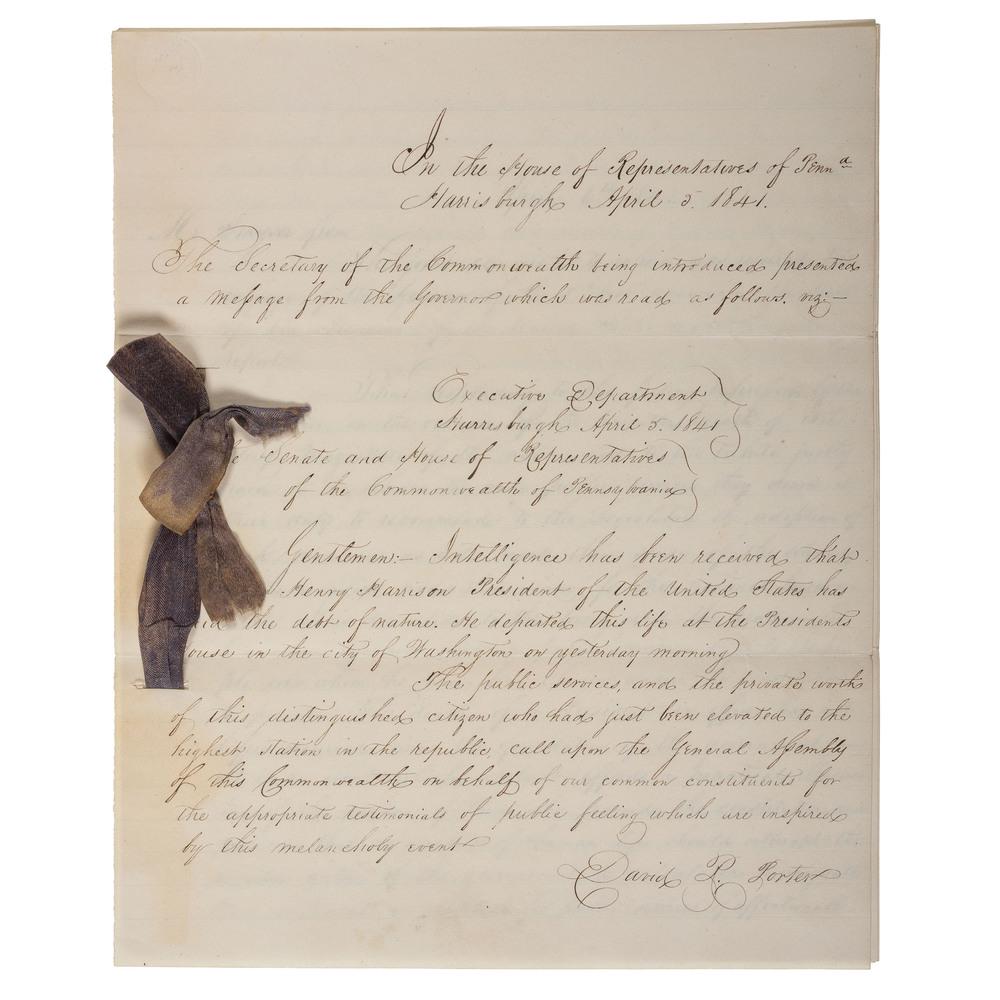 In the House of Representatives of Pennᵃ
Harrisburgh April 5. 1841.
The Secretary of the Commonwealth being introduced presented
a message from the Governor which was read as follows. viz:—
Executive Department
Harrisburgh April 5. 1841
e Senate and House of Representatives
of the Commonwealth of Pennsylvania
Gentlemen:— Intelligence has been received that
Henry Harrison President of the United States has
aid the debt of nature. He departed this life at the Presidents
ouse in the city of Washington on yesterday morning
The public services, and the private worth
of this distinguished citizen who had just been elevated to the
highest station in the republic, call upon the General Assembly
of this Commonwealth on behalf of our common constituents for
the appropriate testimonials of public feeling which are inspired
by this melancholy event
David R. Porter